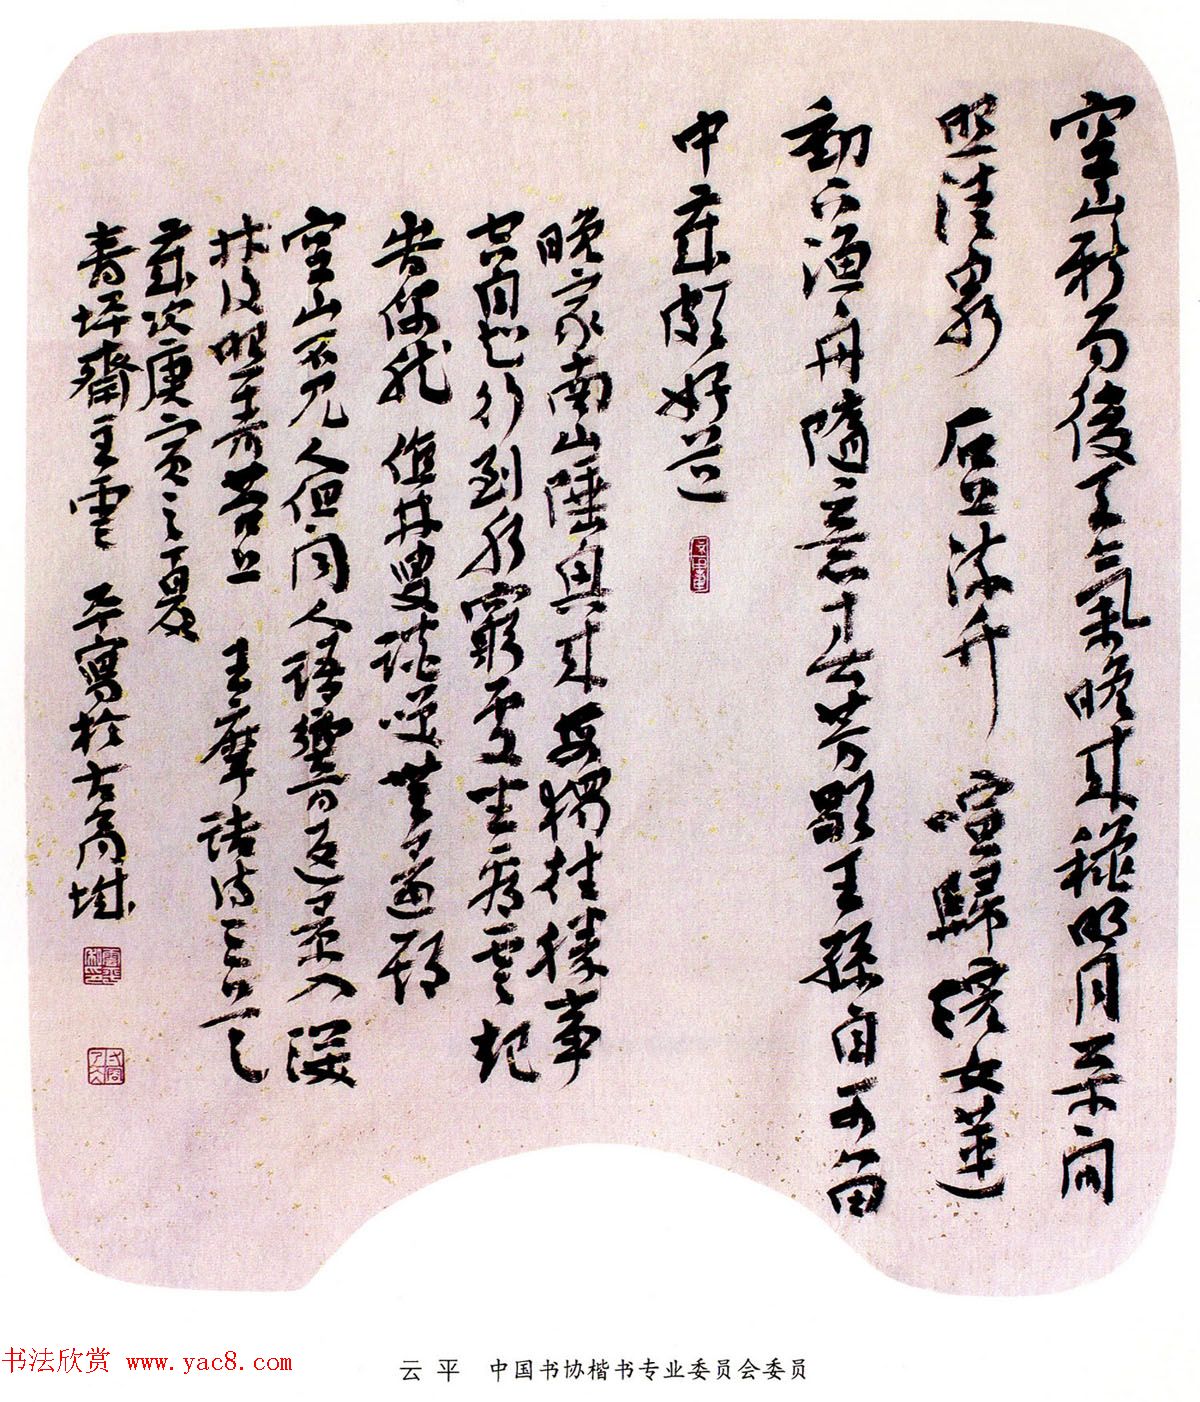 空山新雨後天氣晚来穐明月松間
照清泉石上流竹喧歸浣女蓮
動下漁舟隨意春芳歇王孫自可留
中歲頗好道
晚家南山陲興来每獨往勝事
空自知行到水窮處坐看雲起
時偶然值林叟談笑無還期
空山不見人但聞人語響返景入深
林復照青苔上 王摩詰詩三首
歲次庚寅之夏
青坪齋主雲平寫於古商城
书法欣赏 www.yac8.com
云平 中国书协楷书专业委员会委员